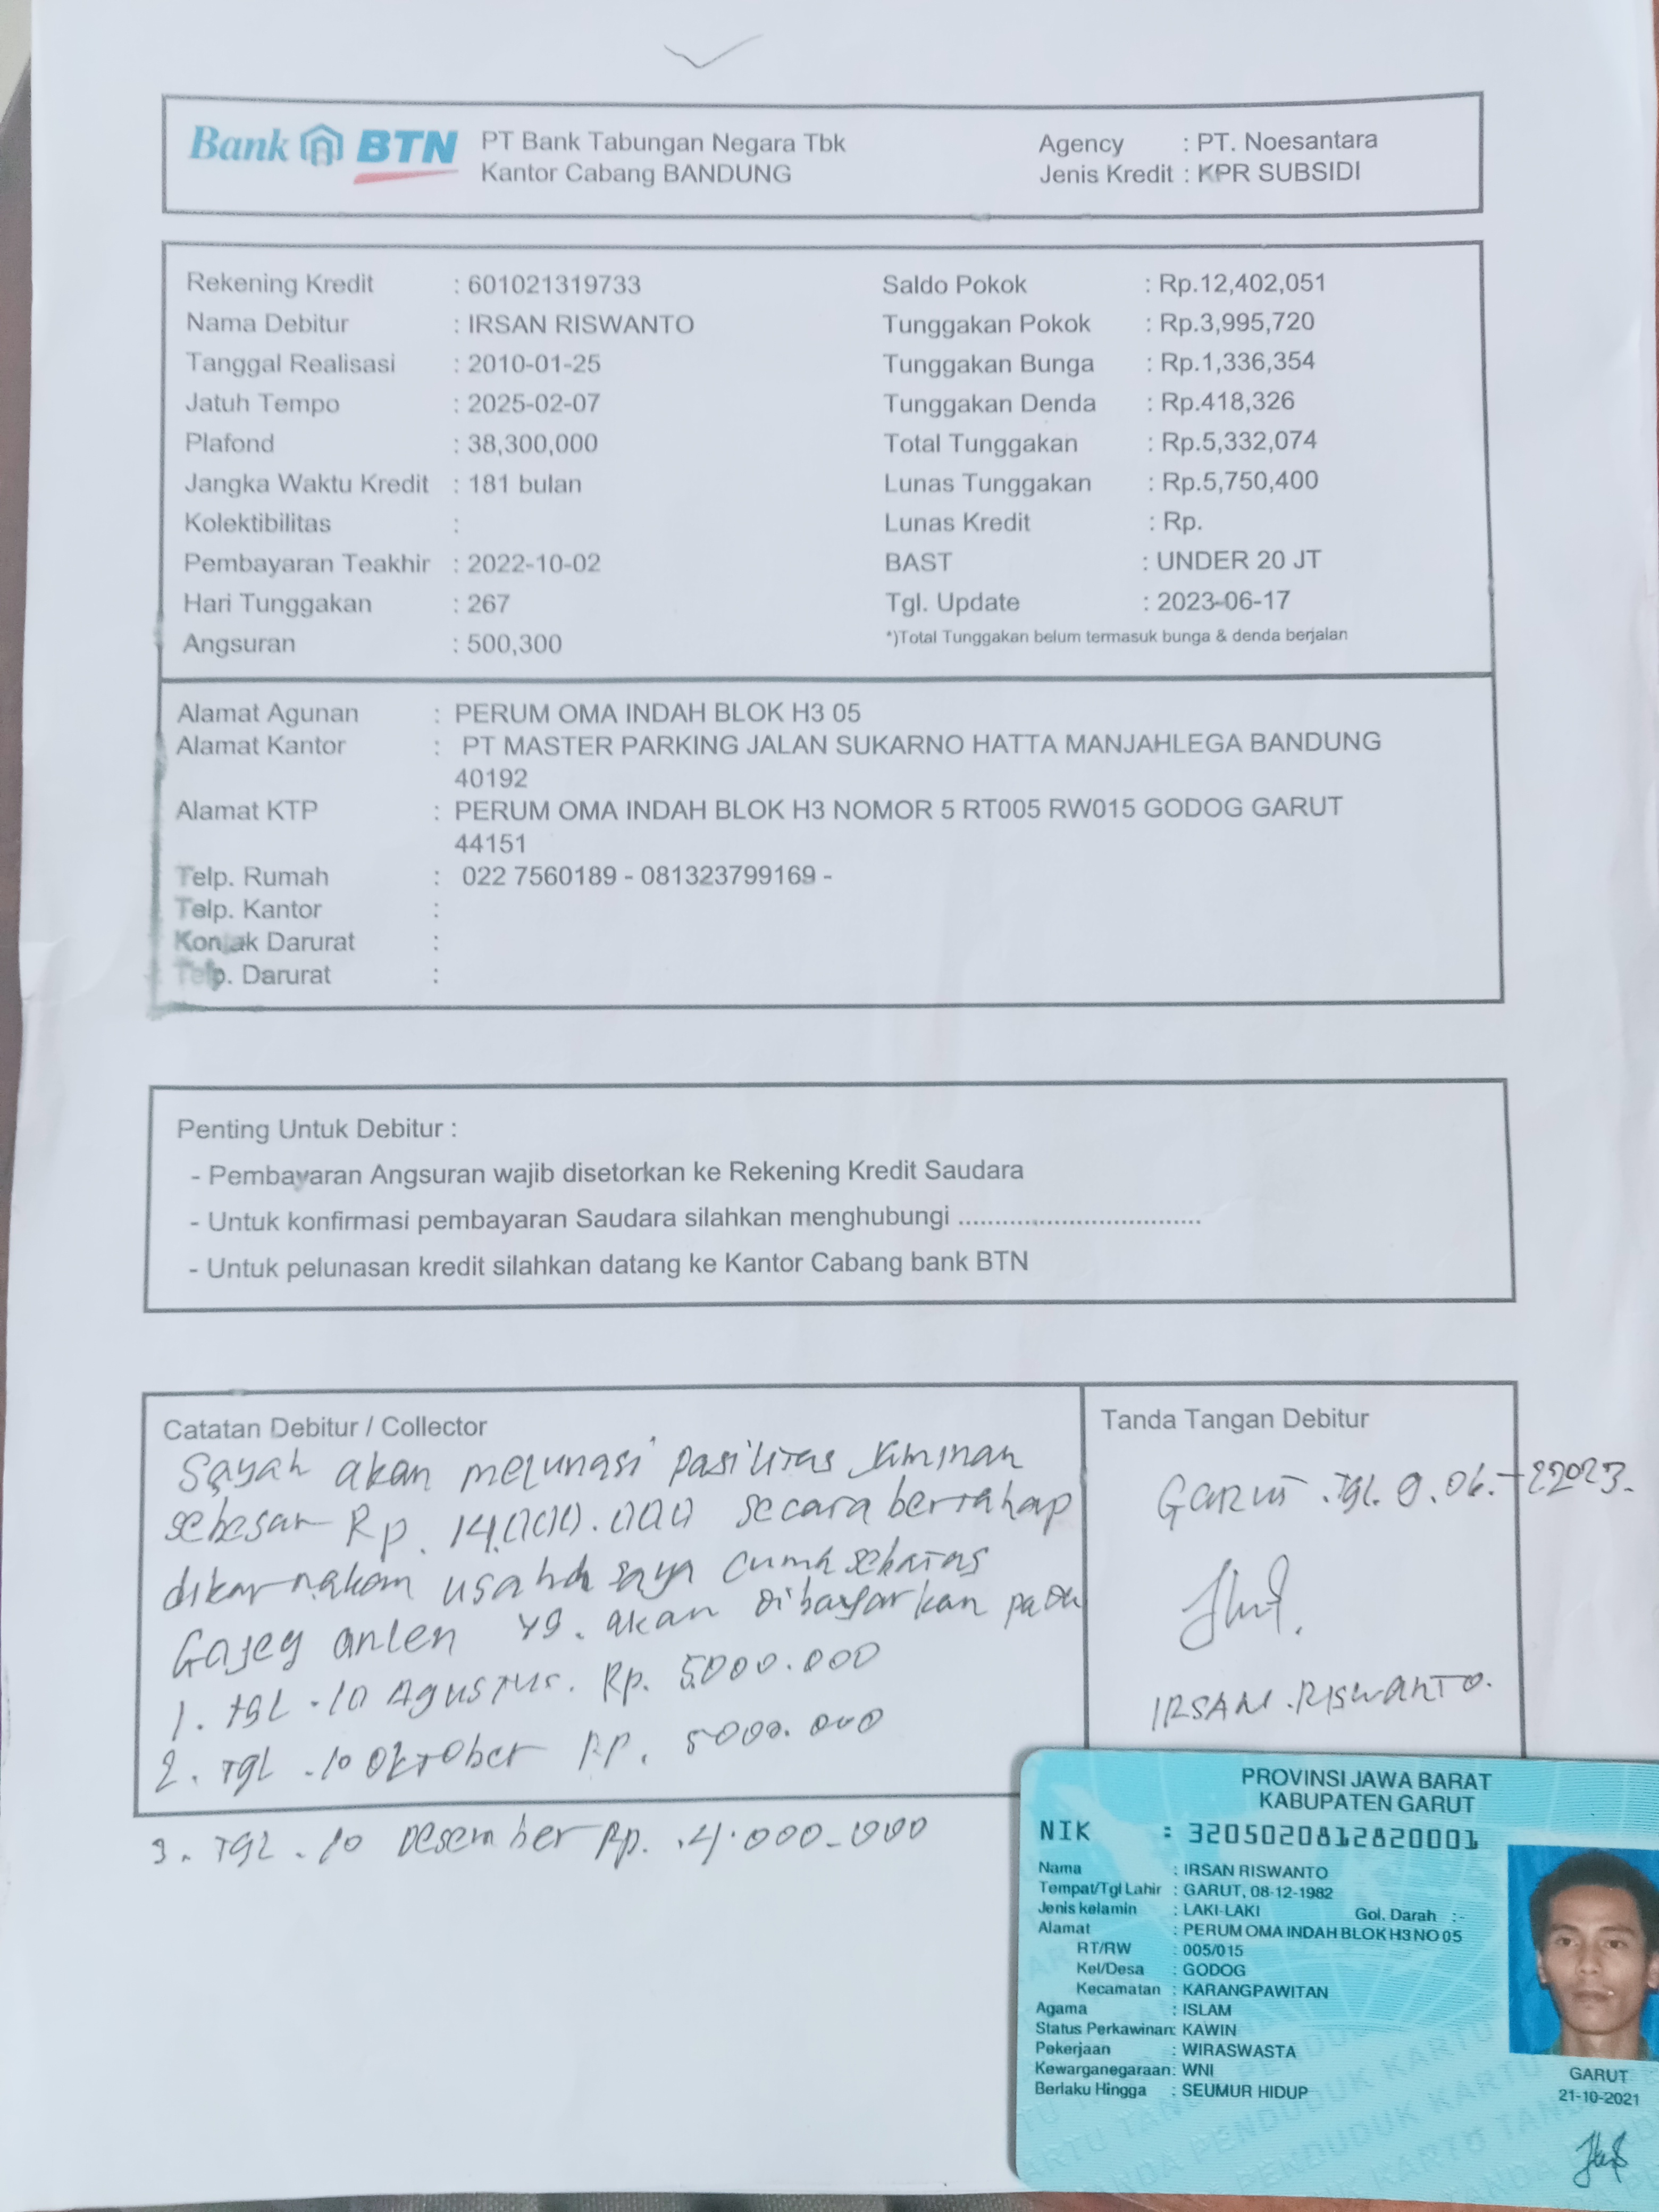 Bank BTN PT Bank Tabungan Negara Tbk
Kantor Cabang BANDUNG
Agency : PT. Noesantara
Jenis Kredit : KPR SUBSIDI
Rekening Kredit : 601021319733
Nama Debitur : IRSAN RISWANTO
Tanggal Realisasi : 2010-01-25
Jatuh Tempo : 2025-02-07
Plafond : 38,300,000
Jangka Waktu Kredit : 181 bulan
Kolektibilitas :
Pembayaran Teakhir : 2022-10-02
Hari Tunggakan : 267
Angsuran : 500,300
Saldo Pokok : Rp.12,402,051
Tunggakan Pokok : Rp.3,995,720
Tunggakan Bunga : Rp.1,336,354
Tunggakan Denda : Rp.418,326
Total Tunggakan : Rp.5,332,074
Lunas Tunggakan : Rp.5,750,400
Lunas Kredit : Rp.
BAST : UNDER 20 JT
Tgl. Update : 2023-06-17
*)Total Tunggakan belum termasuk bunga & denda berjalan
Alamat Agunan : PERUM OMA INDAH BLOK H3 05
Alamat Kantor : PT MASTER PARKING JALAN SUKARNO HATTA MANJAHLEGA BANDUNG
40192
Alamat KTP : PERUM OMA INDAH BLOK H3 NOMOR 5 RT005 RW015 GODOG GARUT
44151
Telp. Rumah : 022 7560189 - 081323799169 -
Telp. Kantor :
Kontak Darurat :
Telp. Darurat :
Penting Untuk Debitur :
- Pembayaran Angsuran wajib disetorkan ke Rekening Kredit Saudara
- Untuk konfirmasi pembayaran Saudara silahkan menghubungi .................................
- Untuk pelunasan kredit silahkan datang ke Kantor Cabang bank BTN
Catatan Debitur / Collector
Sayah akan melunasi pasilitas Jaminan
sebesar Rp. 14.000.000 secara bertahap
dikarnakan usaha saya cuma sebatas
yg. akan dibayarkan pada
1. tgl . 10 Agustus. Rp. 5000.000
2. Tgl . 10 Oktober Rp. 5000.000
3. Tgl . 10 Desember Rp. 4.000.000
Tanda Tangan Debitur
Garut .Tgl.
IRSAN . RISWANTO.
PROVINSI JAWA BARAT
KABUPATEN GARUT
NIK : 3205020812820001
Nama : IRSAN RISWANTO
Tempat/Tgl Lahir : GARUT, 08-12-1982
Jenis kelamin : LAKI-LAKI Gol. Darah :-
Alamat : PERUM OMA INDAH BLOK H3 NO 05
RT/RW : 005/015
Kel/Desa : GODOG
Kecamatan : KARANGPAWITAN
Agama : ISLAM
Status Perkawinan: KAWIN
Pekerjaan : WIRASWASTA
Kewarganegaraan: WNI
Berlaku Hingga : SEUMUR HIDUP
GARUT
21-10-2021